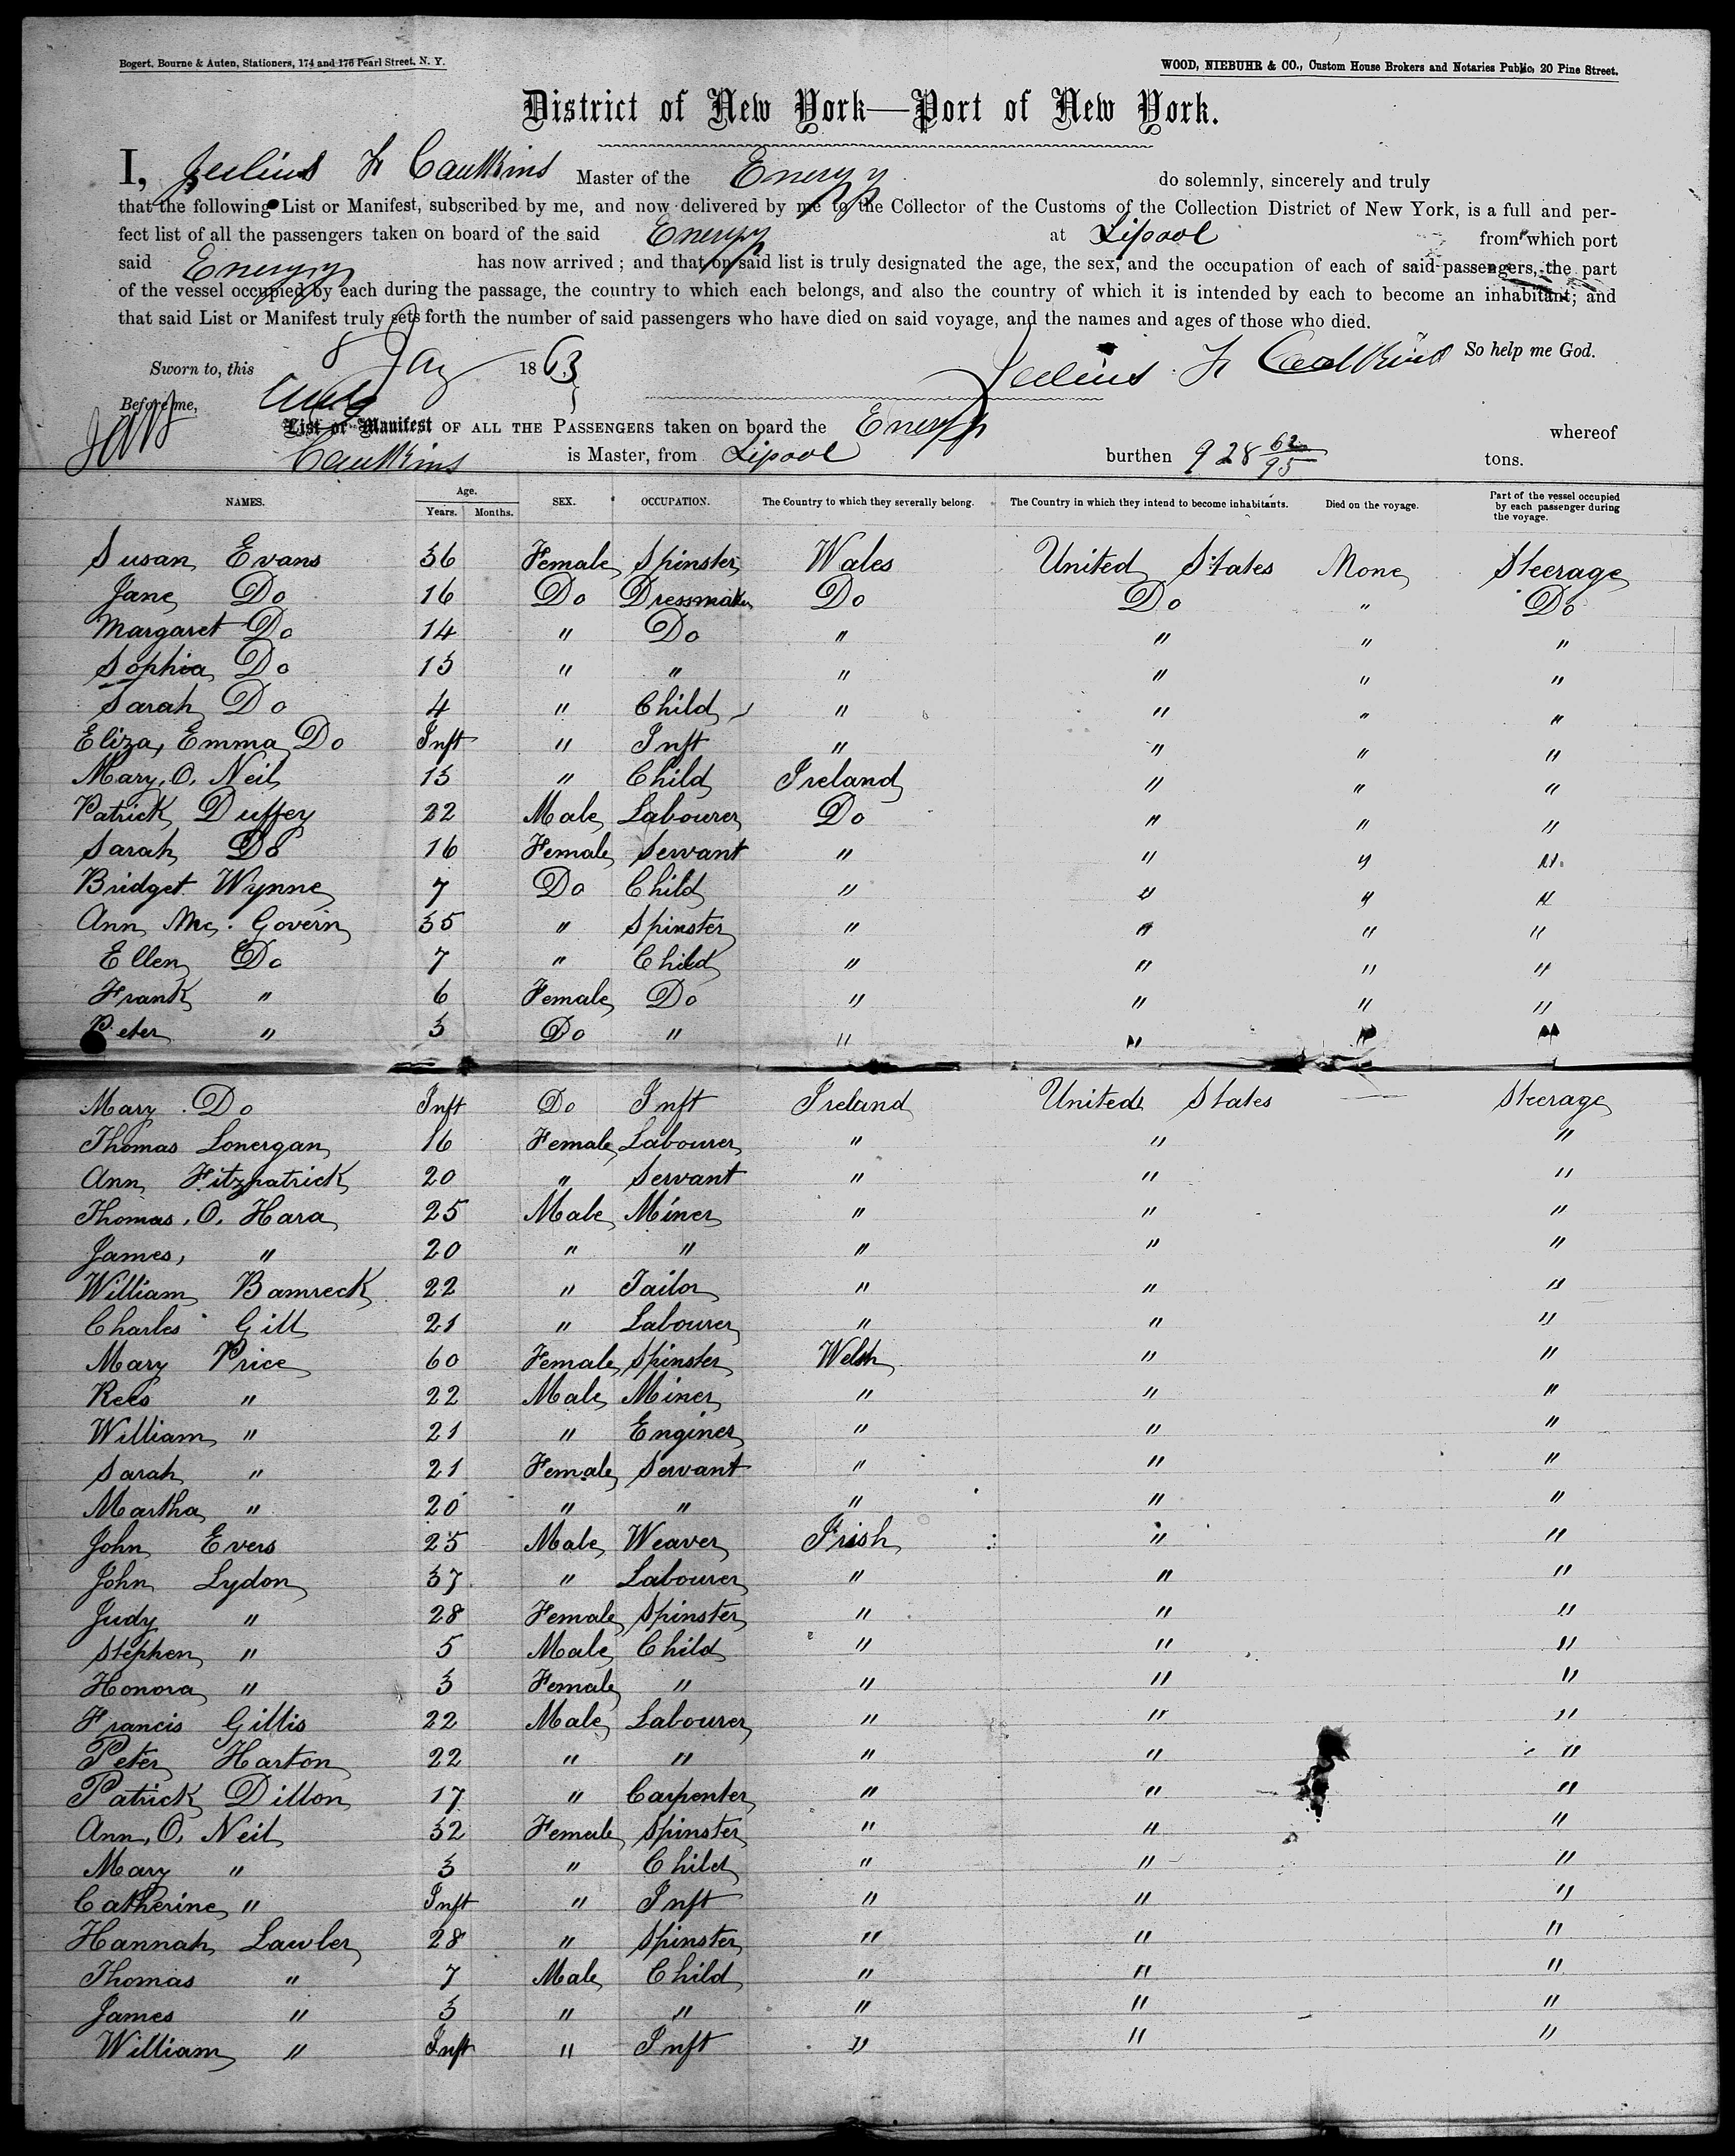 Bogert, Bourne & Auten, Stationers, 174 and 176 Pearl Street, N. Y. WOOD, NIEBUHR & CO., Custom House Brokers and Notaries Public, 20 Pine Street.
District of New York—Port of New York.
I, Julius F Caulkins Master of the Energy do solemnly, sincerely and truly
that the following List or Manifest, subscribed by me, and now delivered by me to the Collector of the Customs of the Collection District of New York, is a full and per-
fect list of all the passengers taken on board of the said Energy at Lipool from which port
said Energy has now arrived; and that on said list is truly designated the age, the sex, and the occupation of each of said passengers, the part
of the vessel occupied by each during the passage, the country to which each belongs, and also the country of which it is intended by each to become an inhabitant; and
that said List or Manifest truly sets forth the number of said passengers who have died on said voyage, and the names and ages of those who died.
Sworn to, this 8 Jay 1863 Julius F Caulkins So help me God.
Before me,
List or Manifest OF ALL THE PASSENGERS taken on board the Energy whereof
Caulkins is Master, from Lipool burthen 928 62/95 tons.
NAMES. Age. Years. Months. SEX. OCCUPATION. The Country to which they severally belong. The Country in which they intend to become inhabitants. Died on the voyage. Part of the vessel occupied by each passenger during the voyage.
Susan Evans 36 Female Spinster Wales United States None Steerage
Jane Do 16 Do Dressmaker Do Do " Do
Margaret Do 14 " Do " " " "
Sophia Do 13 " " " " " "
Sarah Do 4 " Child " " " "
Eliza, Emma Do Inft " Inft " " " "
Mary, O, Neil 13 " Child Ireland " " "
Patrick Duffey 22 Male Labourer Do " " "
Sarah Do 16 Female Servant " " " "
Bridget Wynne 7 Do Child " " " "
Ann Mc. Govern 35 " Spinster " " " "
Ellen Do 7 " Child " " " "
Frank " 6 Female Do " " " "
Peter " 3 Do " " " " "
Mary Do Inft Do Inft Ireland United States — Steerage
Thomas Lonergan 16 Female Labourer " " "
Ann Fitzpatrick 20 " Servant " " "
Thomas, O, Hara 25 Male Miner " " "
James, " 20 " " " " "
William Bamreck 22 " Tailor " " "
Charles Gill 21 " Labourer " " "
Mary Price 60 Female Spinster Welsh " "
Rees " 22 Male Miner " " "
William " 21 " Enginer " " "
Sarah " 21 Female Servant " " "
Martha " 20 " " " " "
John Evers 25 Male Weaver Irish " "
John Lydon 37 " Labourer " " "
Judy " 28 Female Spinster " " "
Stephen " 5 Male Child " " "
Honora " 3 Female " " " "
Francis Gillis 22 Male Labourer " " "
Peter Harton 22 " " " " "
Patrick Dillon 17 " Carpenter " " "
Ann, O, Neil 32 Female Spinster " " "
Mary " 3 " Child " " "
Catherine " Inft " Inft " " "
Hannah Lawler 28 " Spinster " " "
Thomas " 7 Male Child " " "
James " 3 " " " " "
William " Inft " Inft " " "